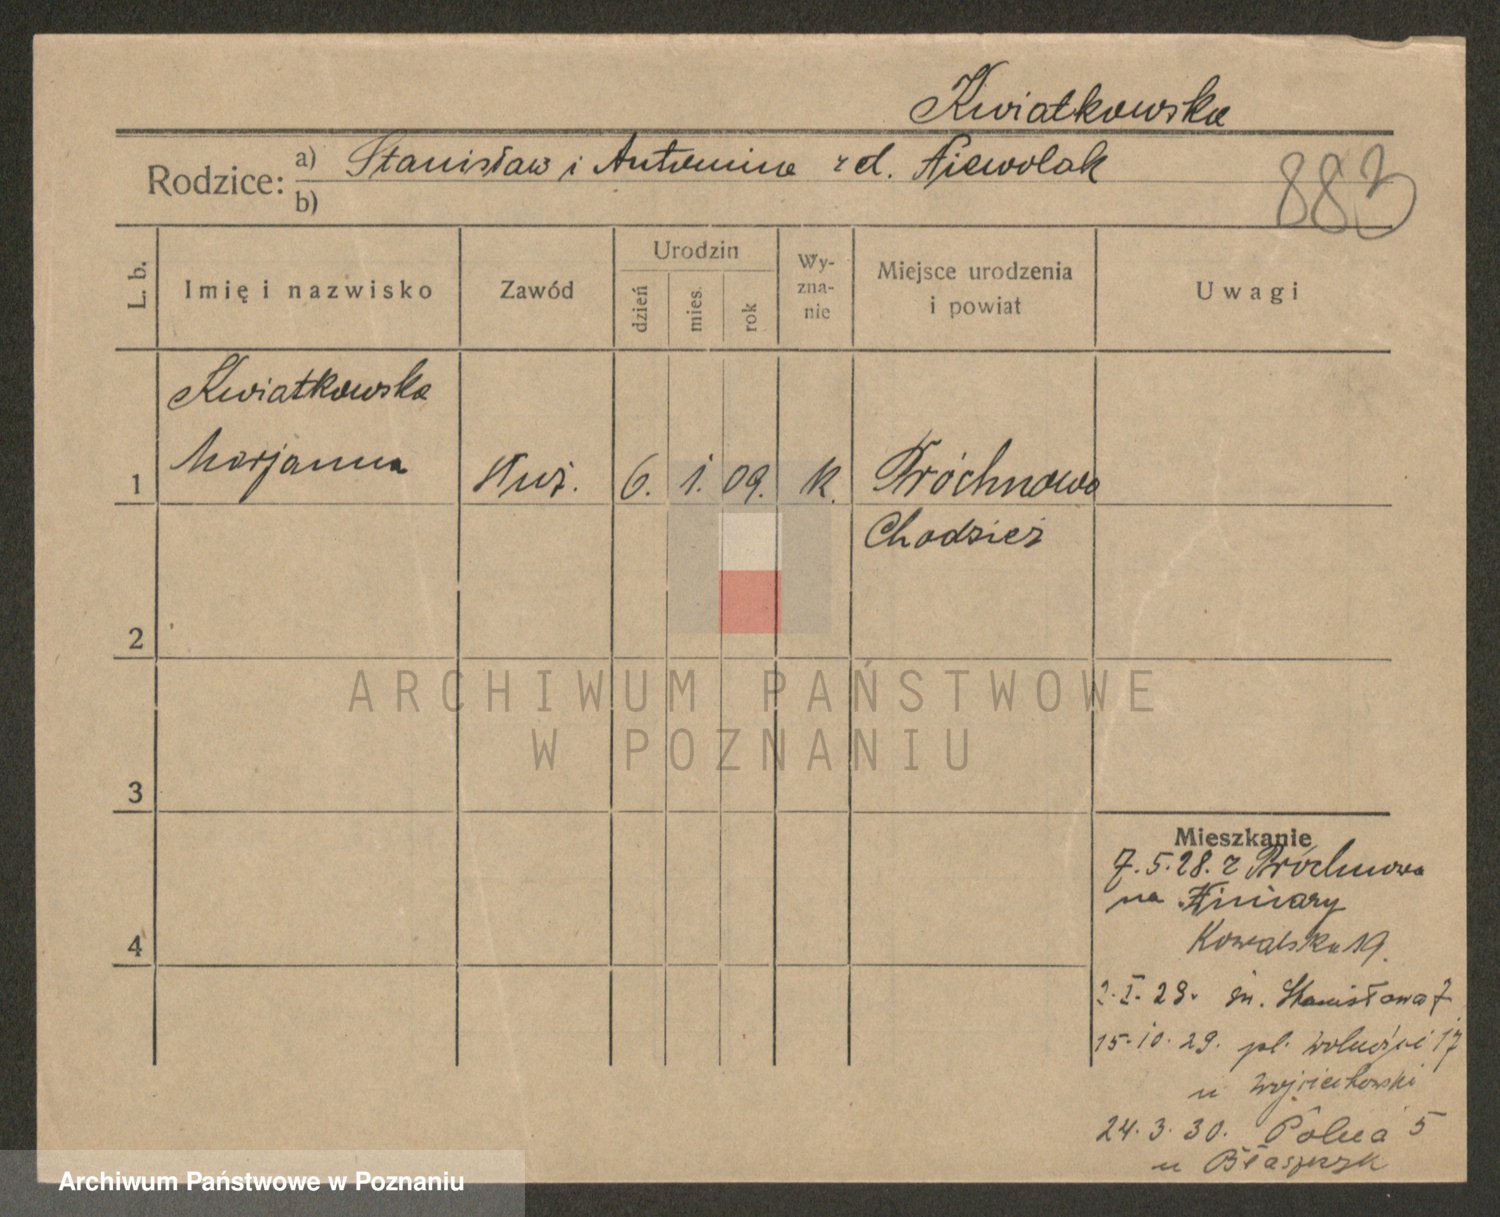 Kwiatkowska
Rodzice: a) Stanisław i Antonina zd. Niewolak
b)
883
L. b.
Imię i nazwisko
Zawód
Urodzin
dzień
mies.
rok
Wy-
zna-
nie
Miejsce urodzenia
i powiat
Uwagi
Kwiatkowska
1 Marjanna
służ. 6. 1. 09. k. Próchnowo
Chodzież
2
3
4
ARCHIWUM PAŃSTWOWE
W POZNANIU
Mieszkanie
7.5.28. z Próchnowa
na
Kowalska 19.
2.I.29. św. Stanisława 7
15.10.29. pl. Wolności 17
u Wojciechowski
24.3.30. Polna 5
u Błaszczyk
Archiwum Państwowe w Poznaniu